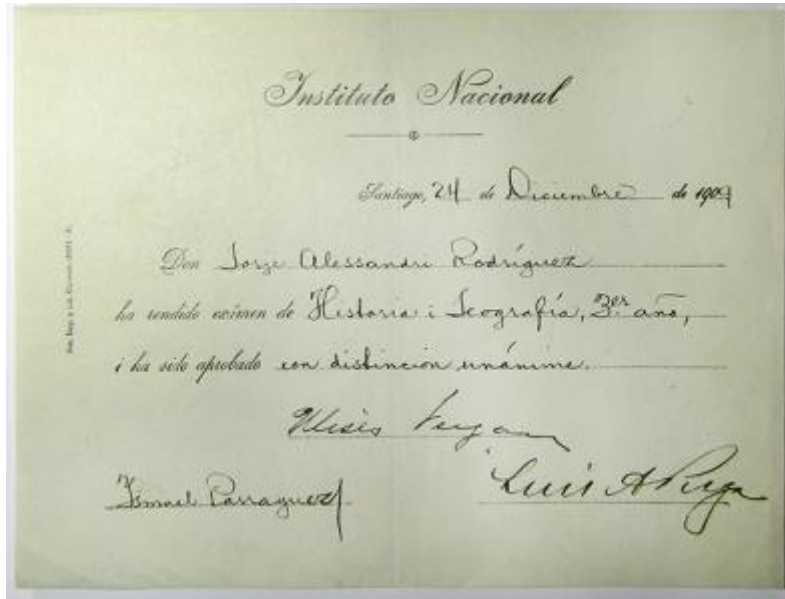 Instituto Nacional
Santiago, 24 de Diciembre de 1909
Don Jorge Alessandri Rodríguez
ha rendido exámen de Historia i Jeografía, 3er. año,
i ha sido aprobado con distincion unánime.
Ulises Vergara
Ismael Parraguez
Luis A Puga